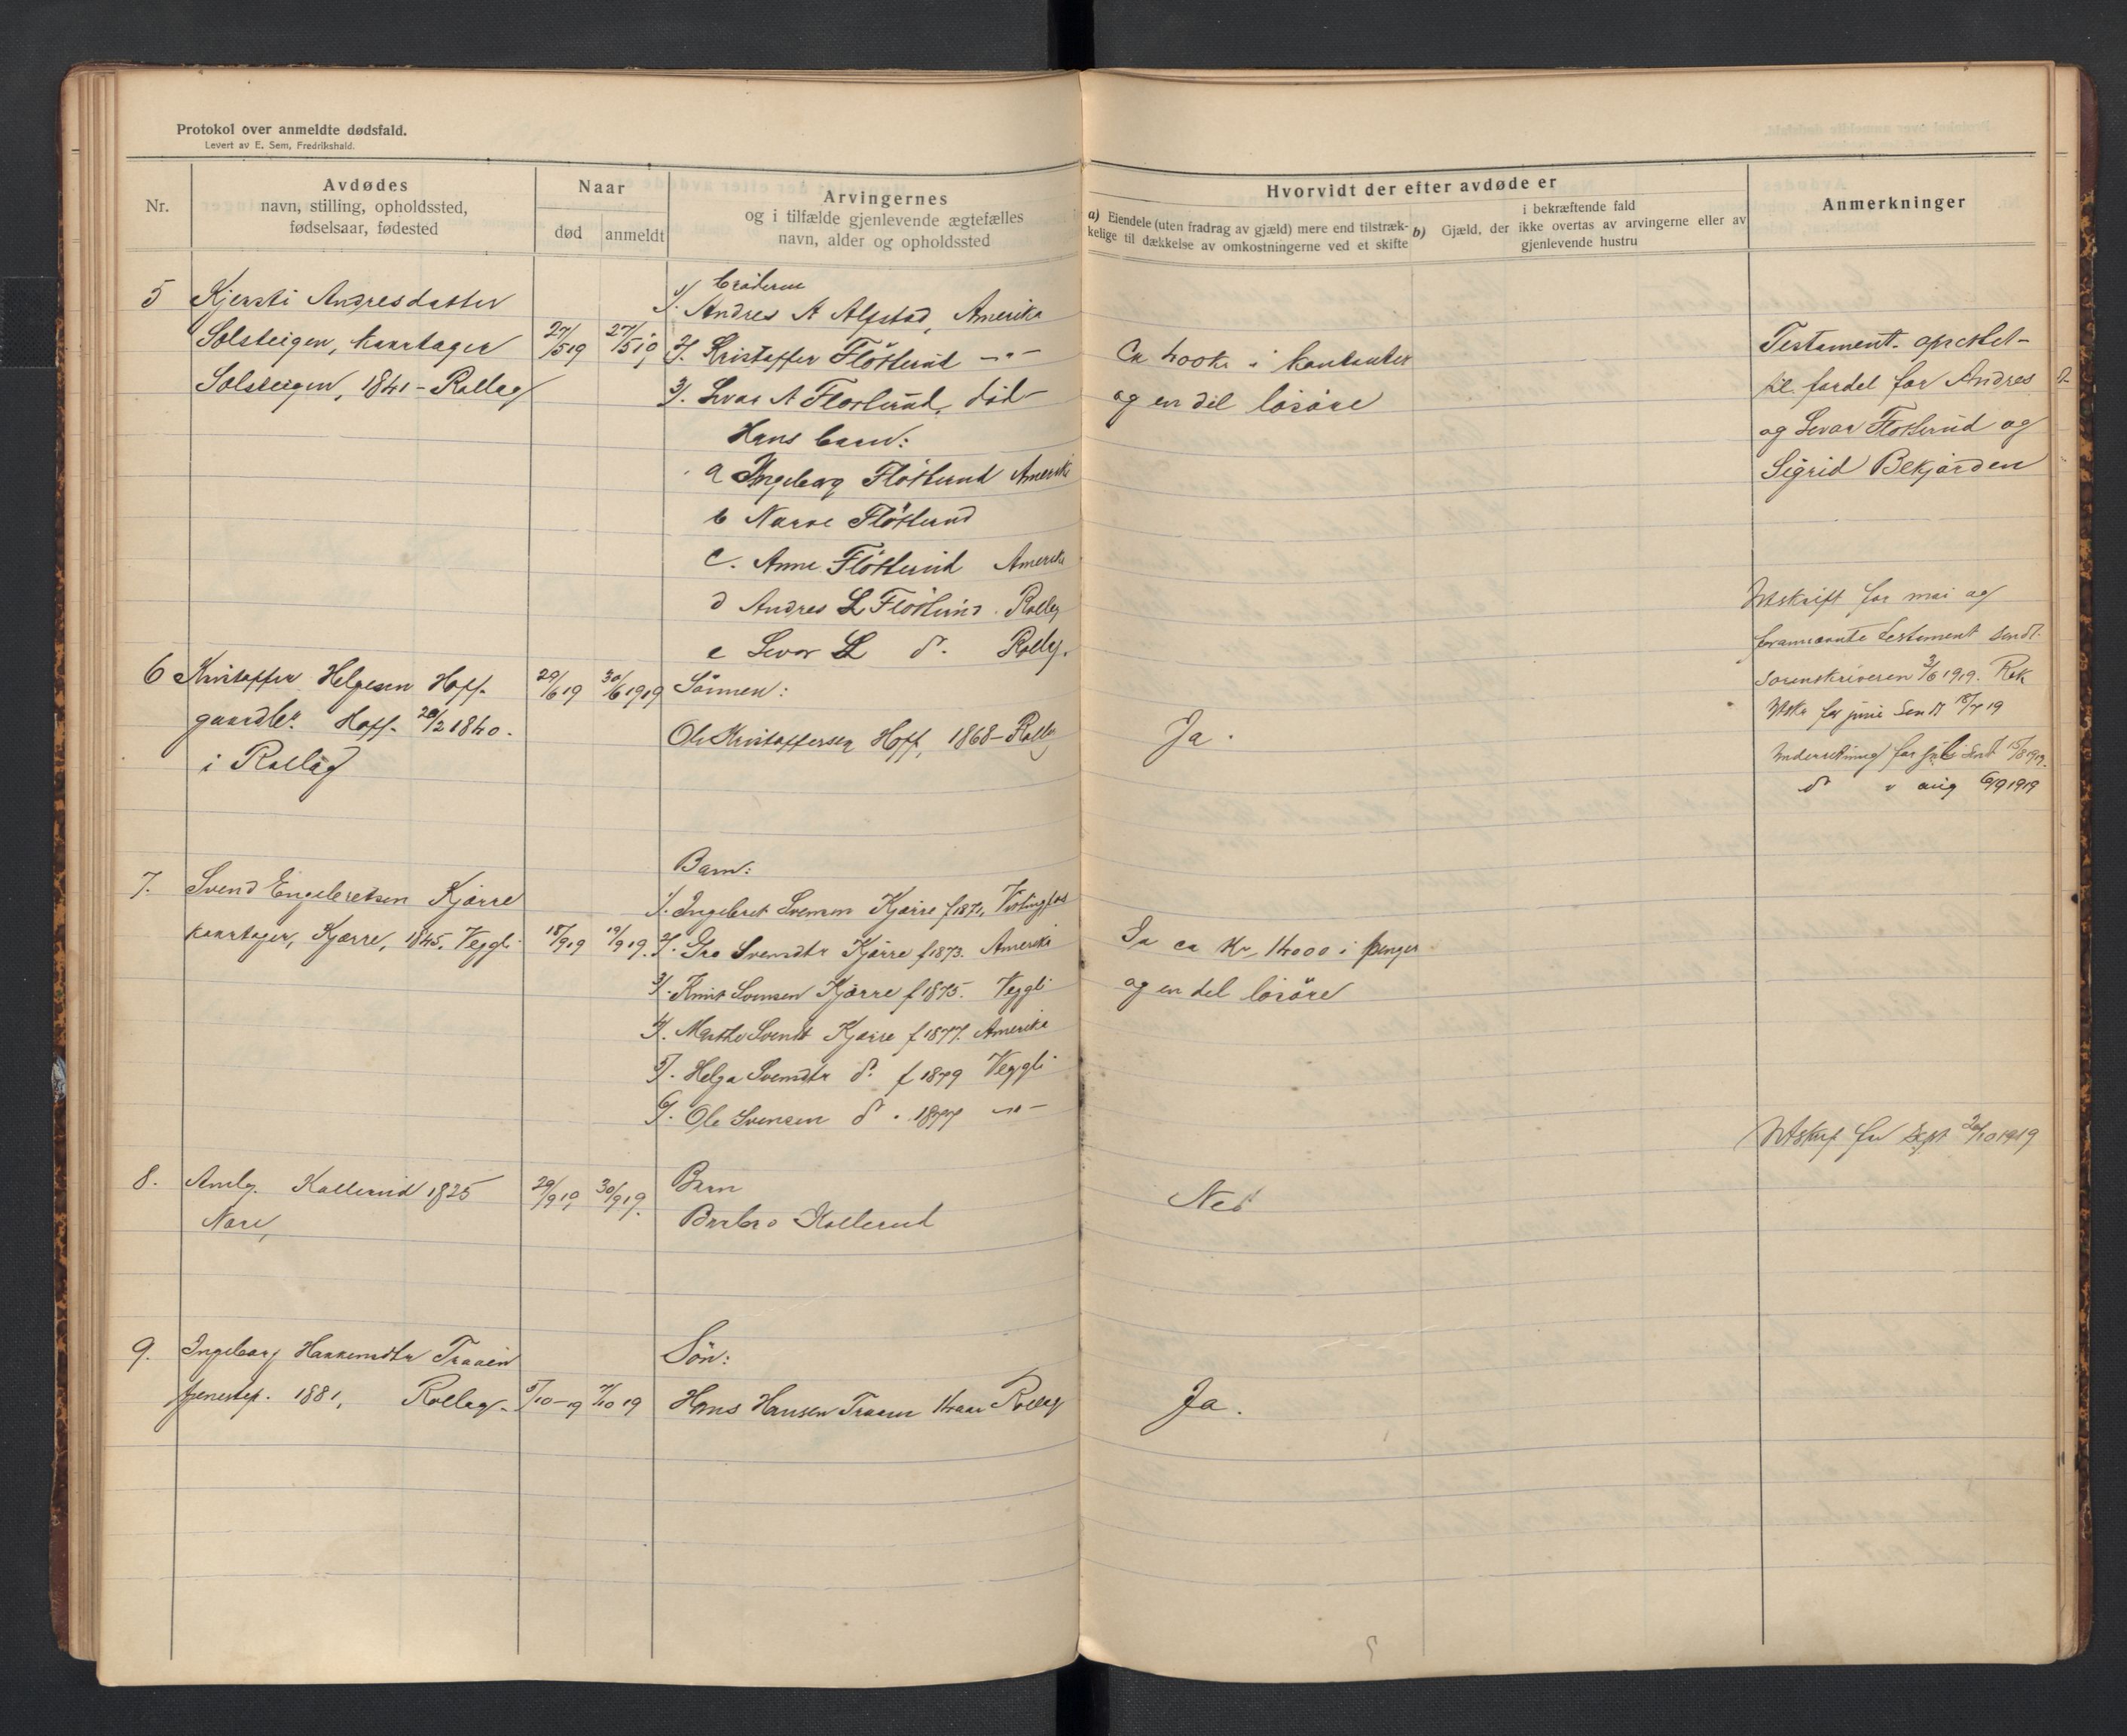 Protokol over anmeldte dødsfald.
Levert av E. Sem, Fredrikshald.
Nr.
Avdødes
navn, stilling, opholdssted,
fødselsaar, fødested
Naar
død
anmeldt
Arvingernes
og i tilfælde gjenlevende ægtefælles
navn, alder og opholdssted
Hvorvidt der efter avdøde er
a) Eiendele (uten fradrag av gjæld) mere end tilstræk-
kelige til dækkelse av omkostningerne ved et skifte
b) Gjæld, der ikke overtas av arvingerne eller av
i bekræftende fald
gjenlevende hustru
Anmerkninger
5 Kjersti Andresdatter
Solsteigen, kaartager
Solsteigen, 1841 - Rollag
27/5 19
27/5 19
Brödrene
1/. Andres A Alfstad, Amerika
2/. Kristoffer Flötterud —"—
3/. Levor A Flotterud, död-
Hans barn:
a Ingeborg Flötterud Amerika
b Narve Flötterud
c. Anne Flötterud Amerika
d Andres L Flötterud. Rollag
e Levor L do. Rollag.
Ca 400 kr i kontanter
og en del lösöre
Testament oprettet
til fordel for Andres
og Levor Flotterud og
Sigrid Bekjorden
Utskrift for mai og
forannævnte testament sendt
sorenskriveren 3/6 1919. Rek
Utskr for juni sendt 18/7 19
Underretning for juli sendt 15/8 1919.
do " aug 6/9 1919
6 Kristoffer Helgesen Hoff
gaardbr. Hoff. 20/2 1840.
i Rollag
29/6 19
30/6 1919
Sönnen:
Ole Kristoffersen Hoff, 1868 - Rollag
Ja.
7. Svend Engebretsen Kjørre
kaartager, Kjærre, 1845. Veggli
18/9 19
19/9 19.
Barn:
1/. Ingebret Svensen Kjærre f 1871,
2/. Gro Svensdtr Kjærre f 1873. Amerika
3/. Knut Svensen Kjærre f 1875. Veggli
4/. Marthe Svendt Kjærre f 1877. Amerika
5/. Helga Svensdtr do. f 1879 Veggli
6/. Ole Svensen do. 1877 —"—
Ja ca Kr 14000 i penger
og en del lösöre
Utskrf for sept 2/10 1919
8. Kallerud 1825
Nore,
29/9 19
30/9 19.
Barn
Barbro Kallerud
Nei
9. Ingeborg Haakensdtr Traaen
tjenestep. 1881, Rollag.
5/10-19
7/10 19
Sön:
Hans Hansen Traaen 14 aar Rollag
Ja.